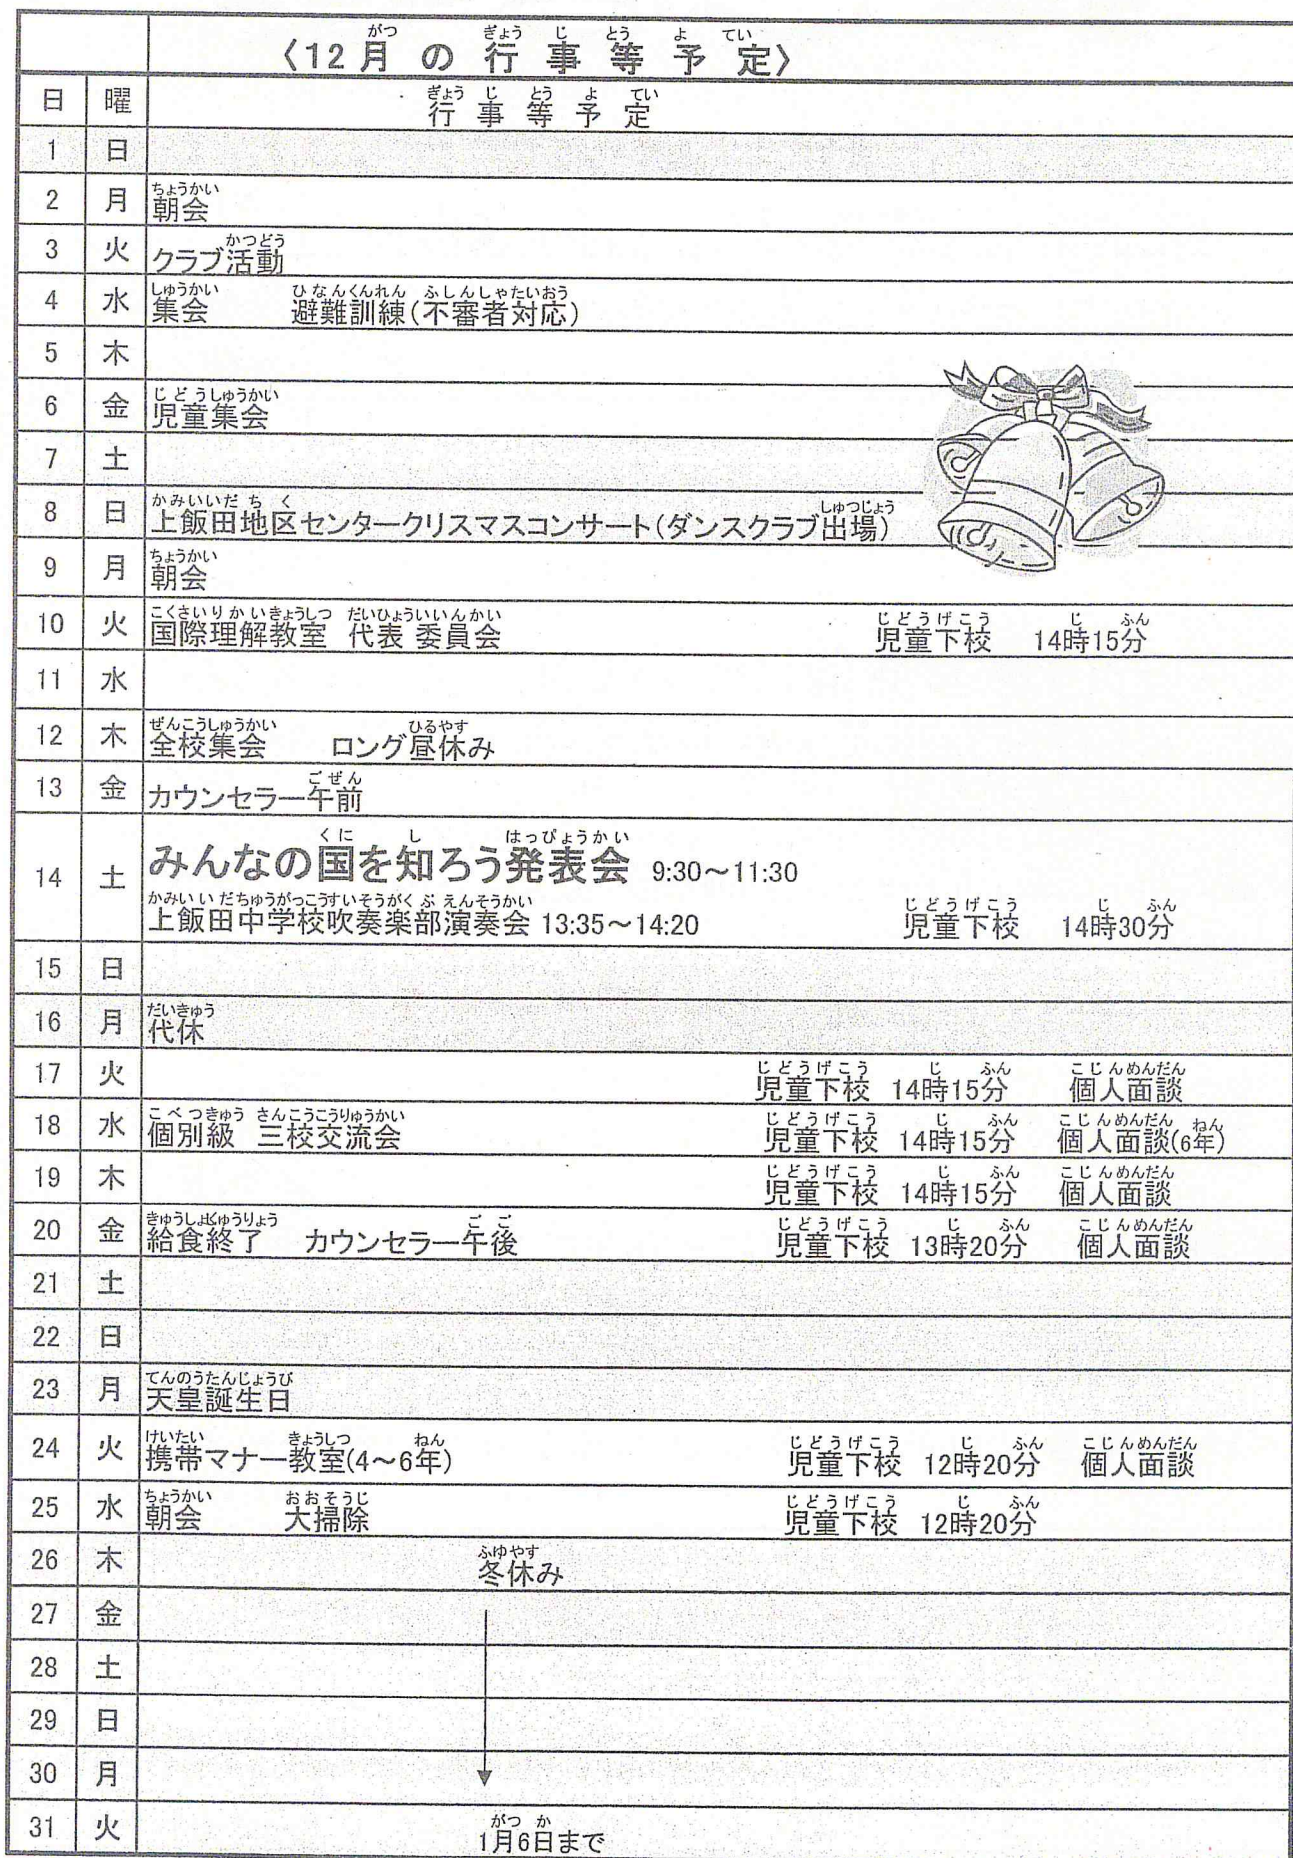 〈12月の行事等予定〉
日 曜 行事等予定
1 日
2 月 朝会
3 火 クラブ活動
4 水 集会 避難訓練(不審者対応)
5 木
6 金 児童集会
7 土
8 日 上飯田地区センタークリスマスコンサート(ダンスクラブ出場)
9 月 朝会
10 火 国際理解教室 代表委員会 児童下校 14時15分
11 水
12 木 全校集会 ロング昼休み
13 金 カウンセラー午前
14 土 みんなの国を知ろう発表会 9:30～11:30
上飯田中学校吹奏楽部演奏会 13:35～14:20 児童下校 14時30分
15 日
16 月 代休
17 火 児童下校 14時15分 個人面談
18 水 個別級 三校交流会 児童下校 14時15分 個人面談(6年)
19 木 児童下校 14時15分 個人面談
20 金 給食終了 カウンセラー午後 児童下校 13時20分 個人面談
21 土
22 日
23 月 天皇誕生日
24 火 携帯マナー教室(4～6年) 児童下校 12時20分 個人面談
25 水 朝会 大掃除 児童下校 12時20分
26 木 冬休み
27 金
28 土
29 日
30 月
31 火 1月6日まで